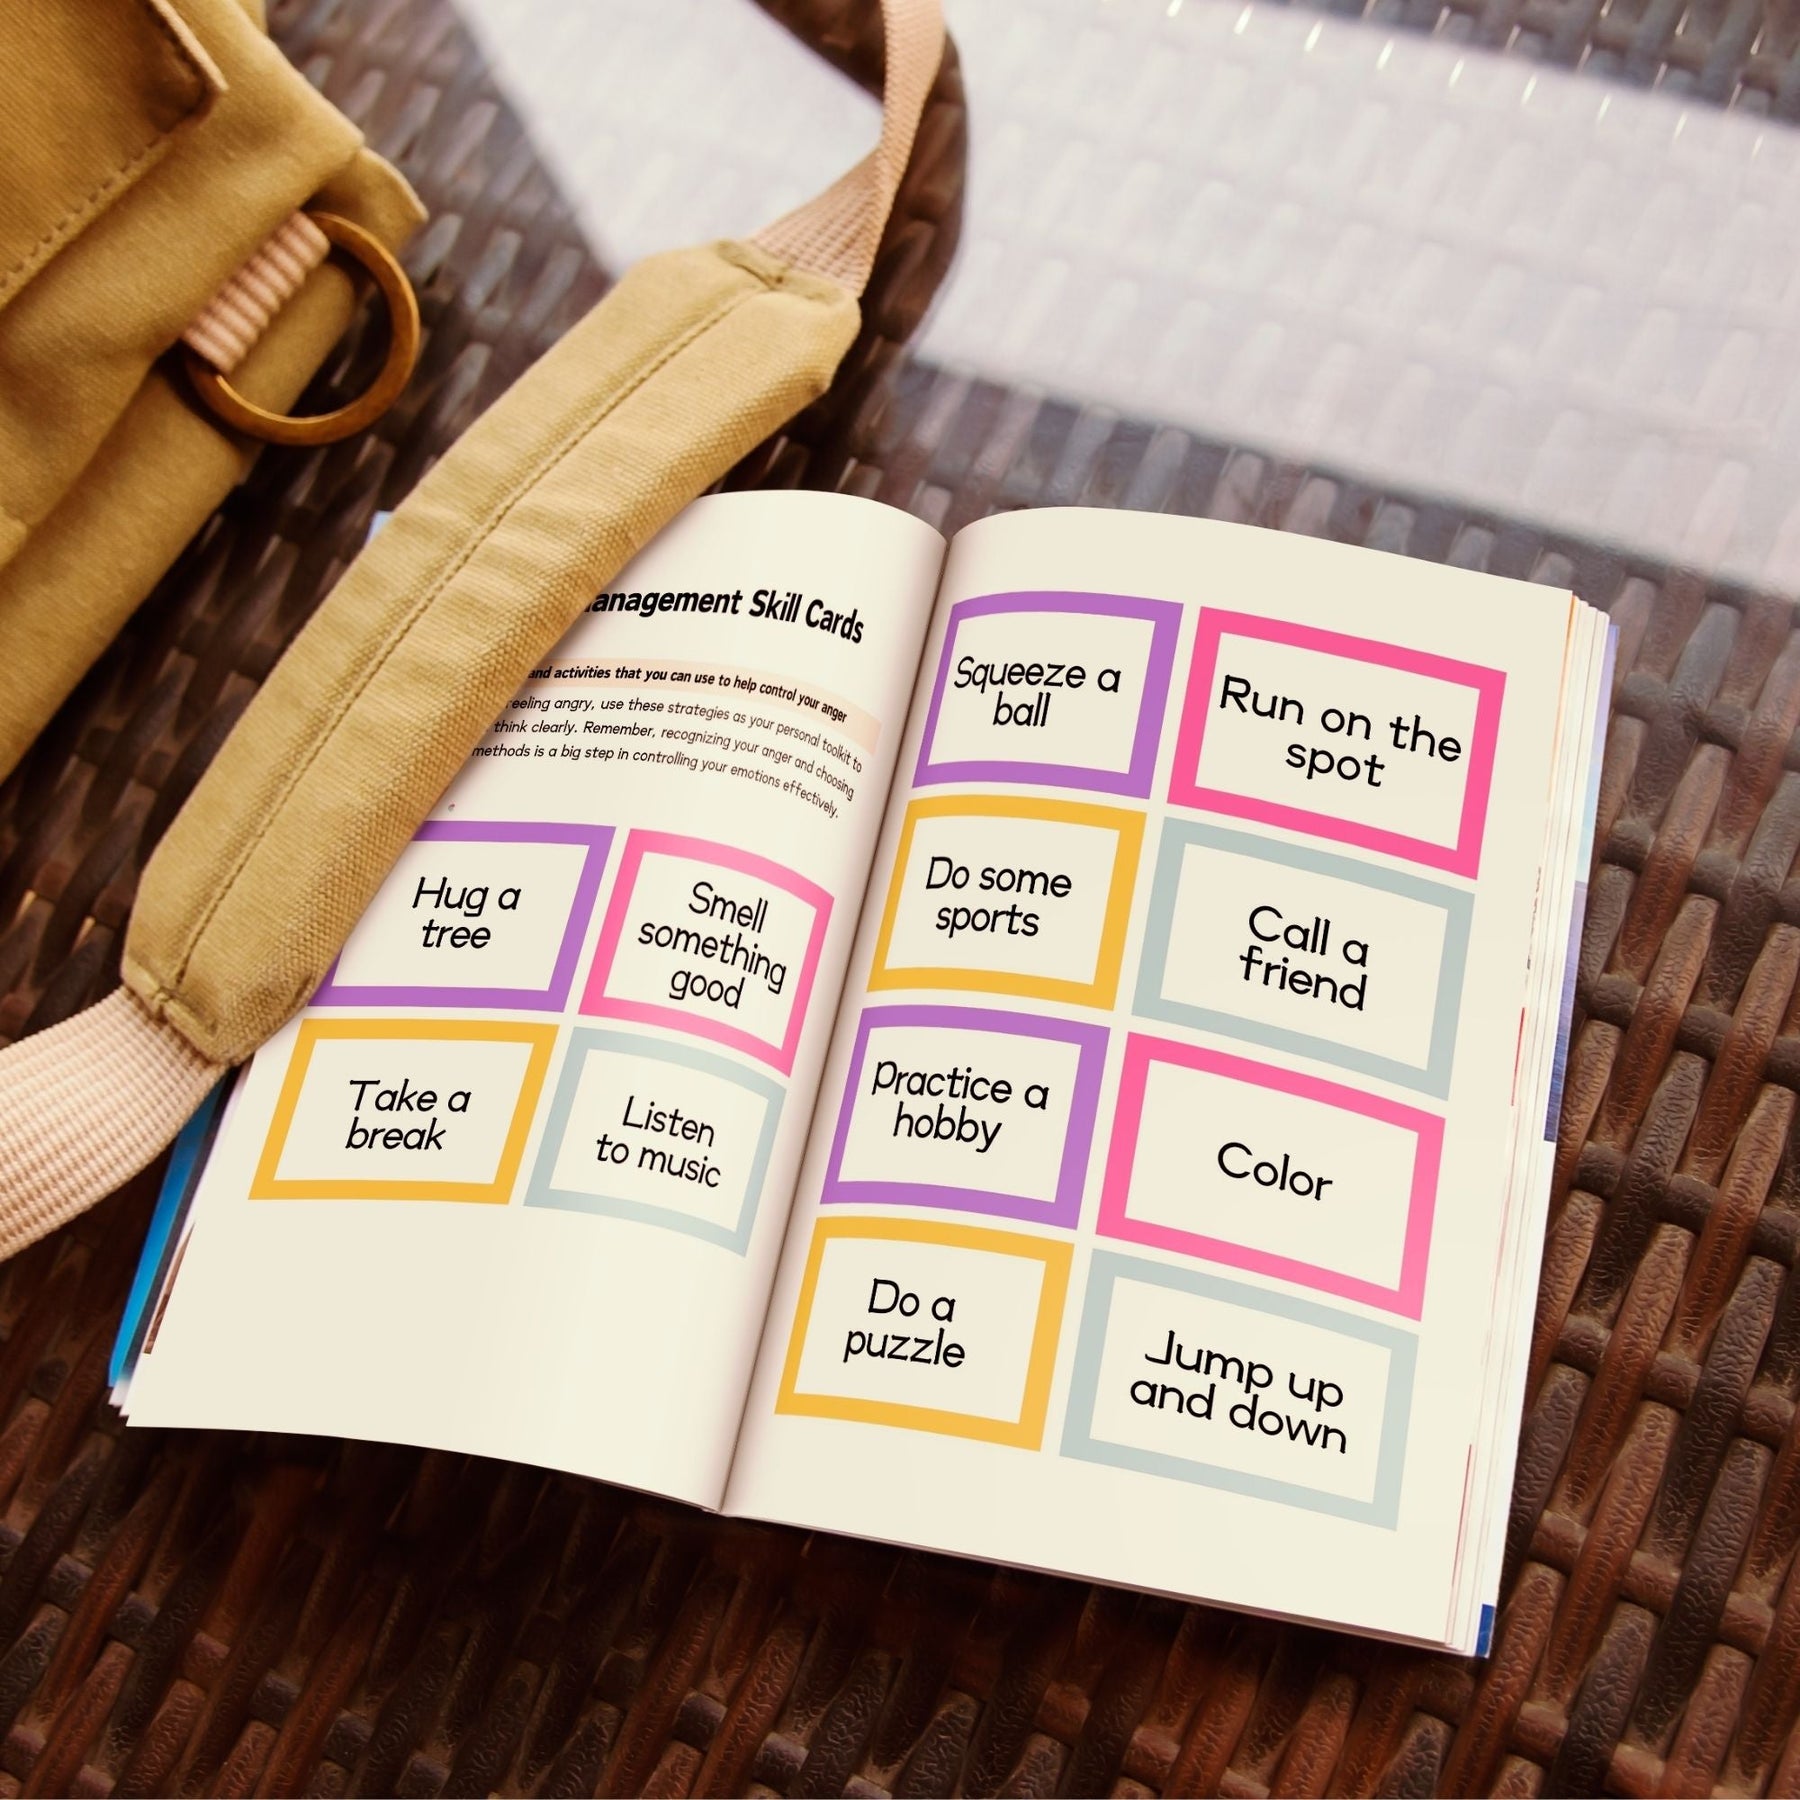 Skill Cards
and activities that you can use to help control your anger
feeling angry, use these strategies as your personal toolkit to
think clearly. Remember, recognizing your anger and choosing
methods is a big step in controlling your emotions effectively.
Hug a
tree
Smell
something
good
Take a
break
Listen
to music
Squeeze a
ball
Run on the
spot
Do some
sports
Call a
friend
Practice a
hobby
Color
Do a
puzzle
Jump up
and down